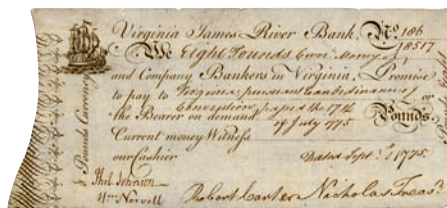 Virginia James River Bank. No. 186
18517
We Eight Pounds Curr.t Money of
and Company Bankers in Virginia, Promise
to pay to Virginia pursuant to an Ordinance of
Convention passed the 17th or
the Bearer on demand of July 1775 Pounds.
Current money Witness
our Cashier Dated Sept.r 1 1775.
Phil Johnson
Wm Norvell
Robert Carter Nicholas Treas.r
8 Pounds Currency